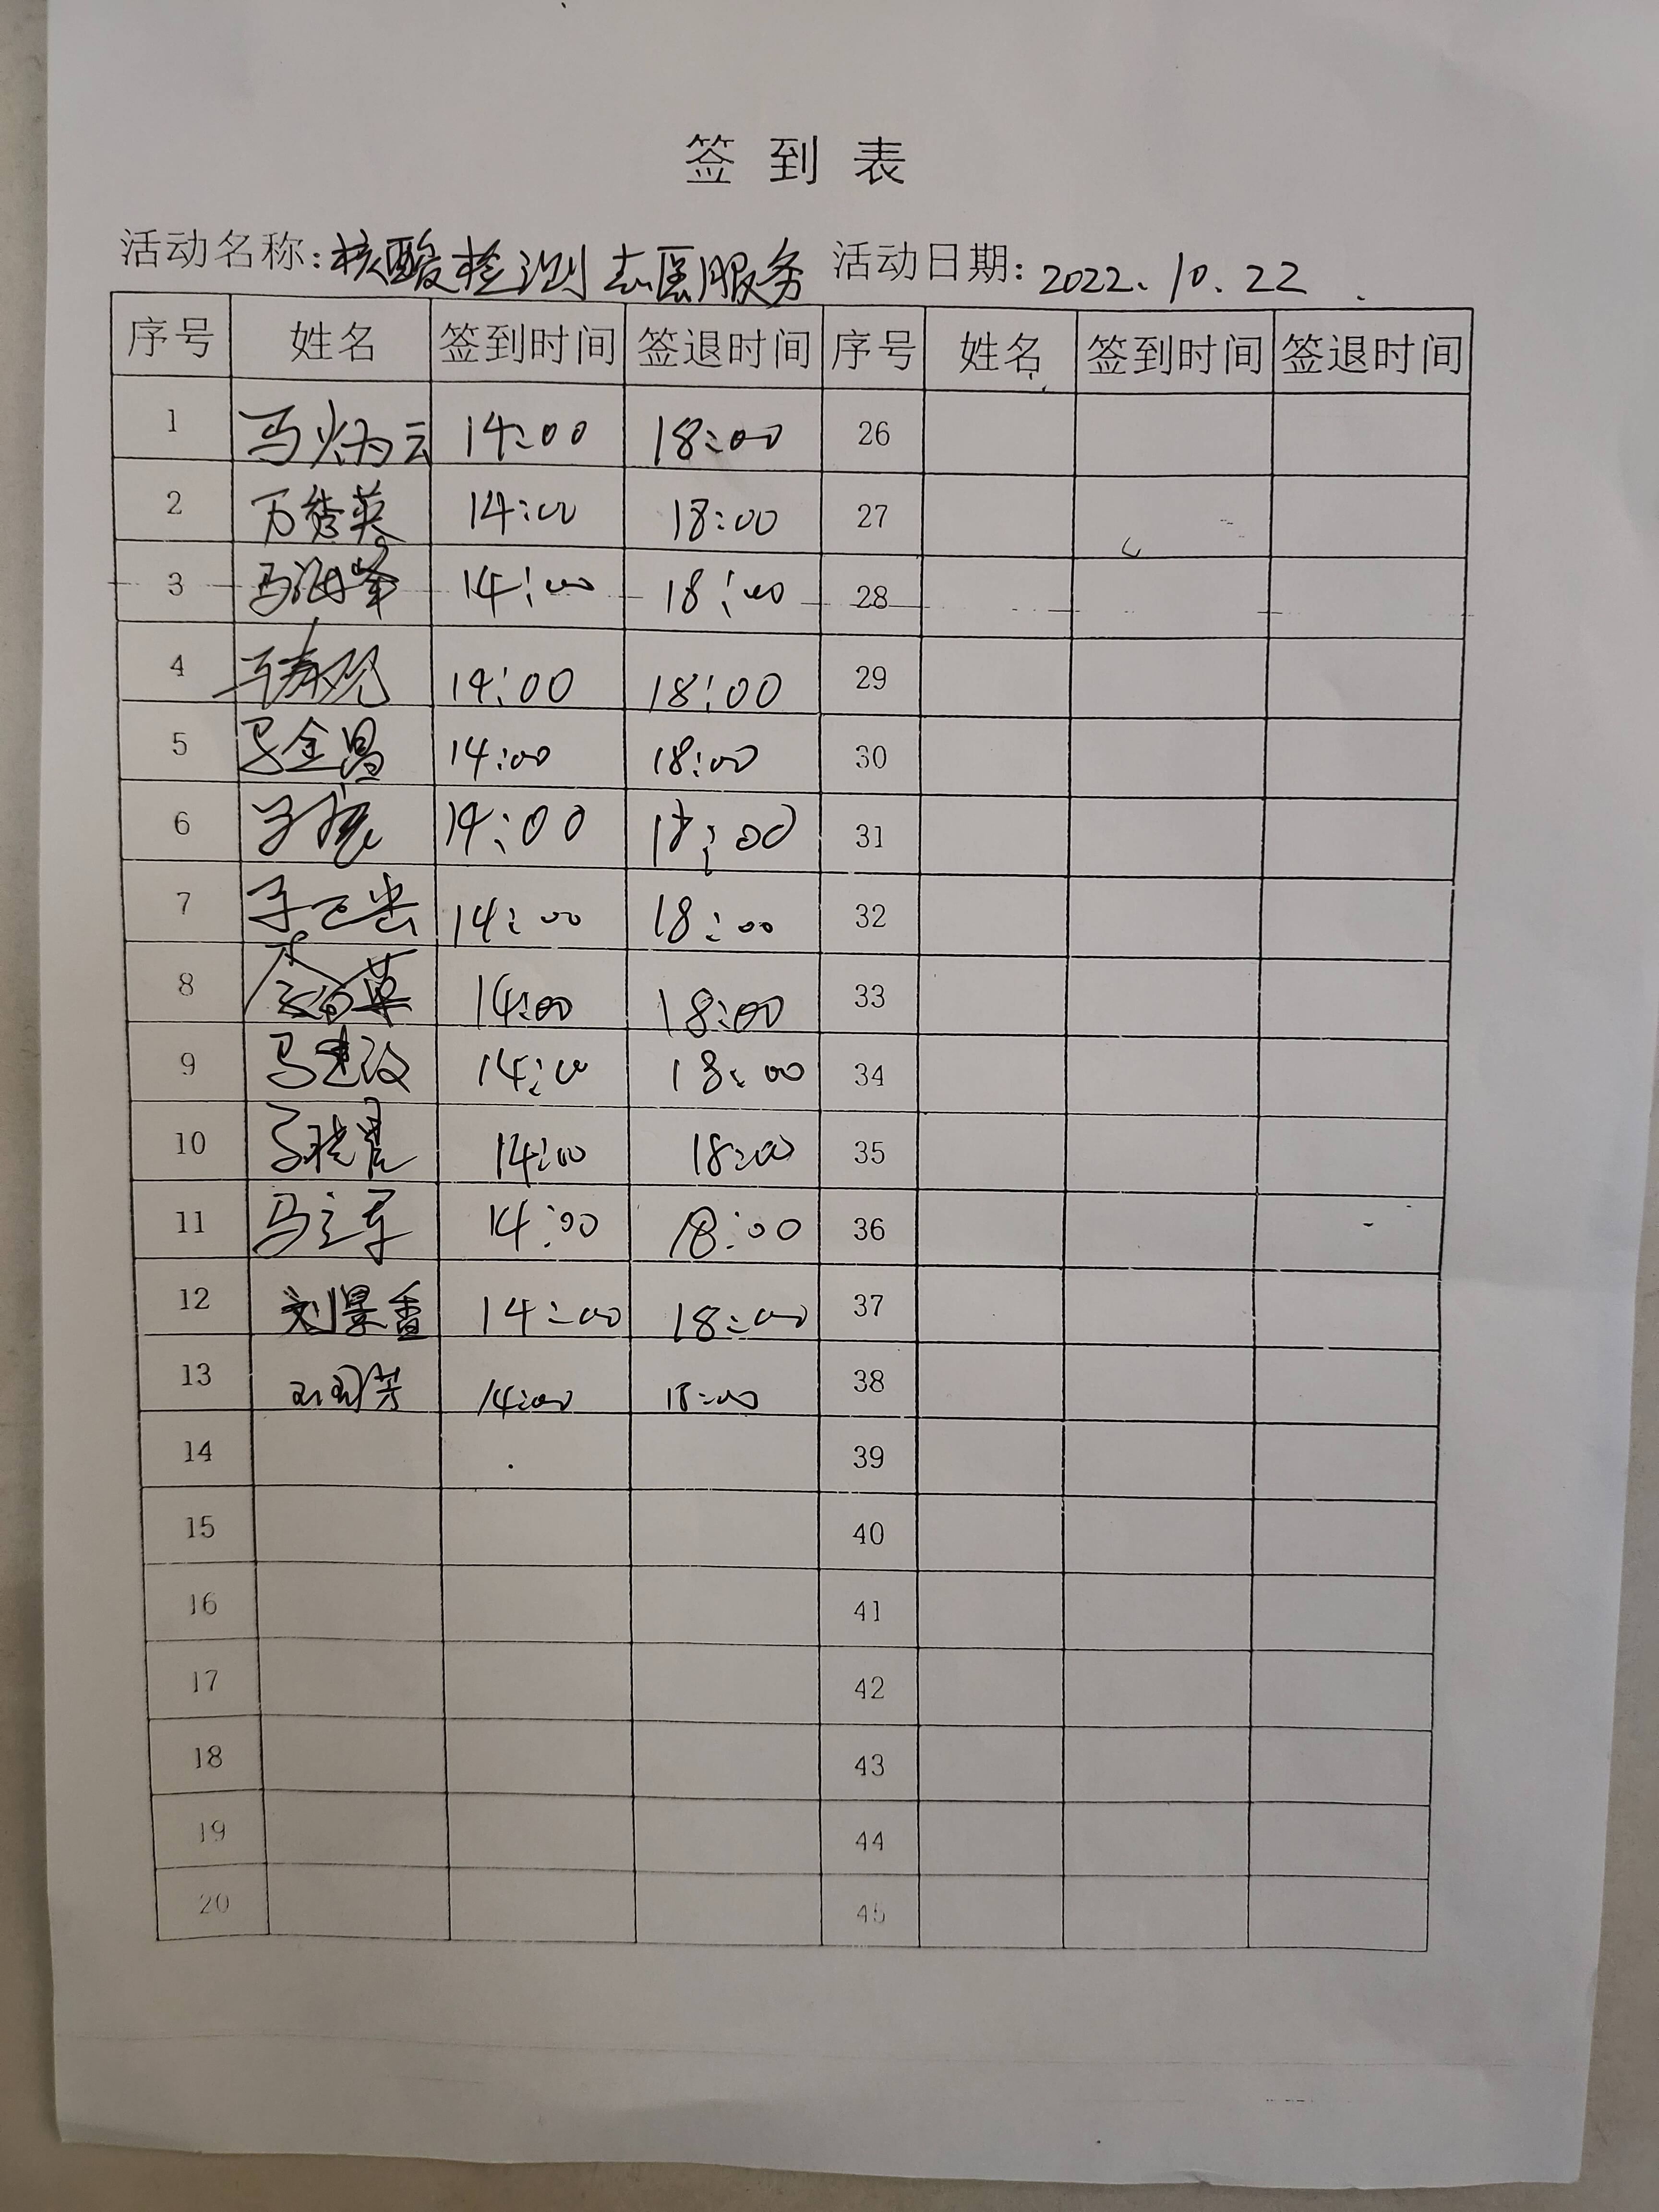 签到表
活动名称：核酸检测志愿服务 活动日期：2022.10.22
序号 姓名 签到时间 签退时间 序号 姓名 签到时间 签退时间
1 马炳云 14:00 18:00 26
2 万秀英 14:00 18:00 27
3 马海峰 14:00 18:00 28
4 14:00 18:00 29
5 马金昌 14:00 18:00 30
6 14:00 18:00 31
7 14:00 18:00 32
8 14:00 18:00 33
9 14:00 18:00 34
10 14:00 18:00 35
11 马立军 14:00 18:00 36
12 刘景香 14:00 18:00 37
13 14:00 18:00 38
14 39
15 40
16 41
17 42
18 43
19 44
20 45